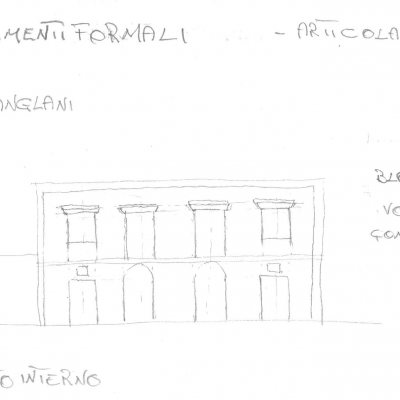 MENTI FORMALI - ARTICOLA
ANGLANI
BLO
VO
CON
O INTERNO